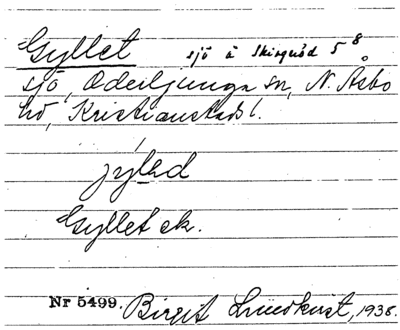 Gyllet sjö å Skirquåd 5 8
sjö, Oderljunga sn, N. Åsbo
hd, Kristianstads l.
jýlad
Gyllet ek.
Nr 5499. Birgit Lundkvist, 1938.